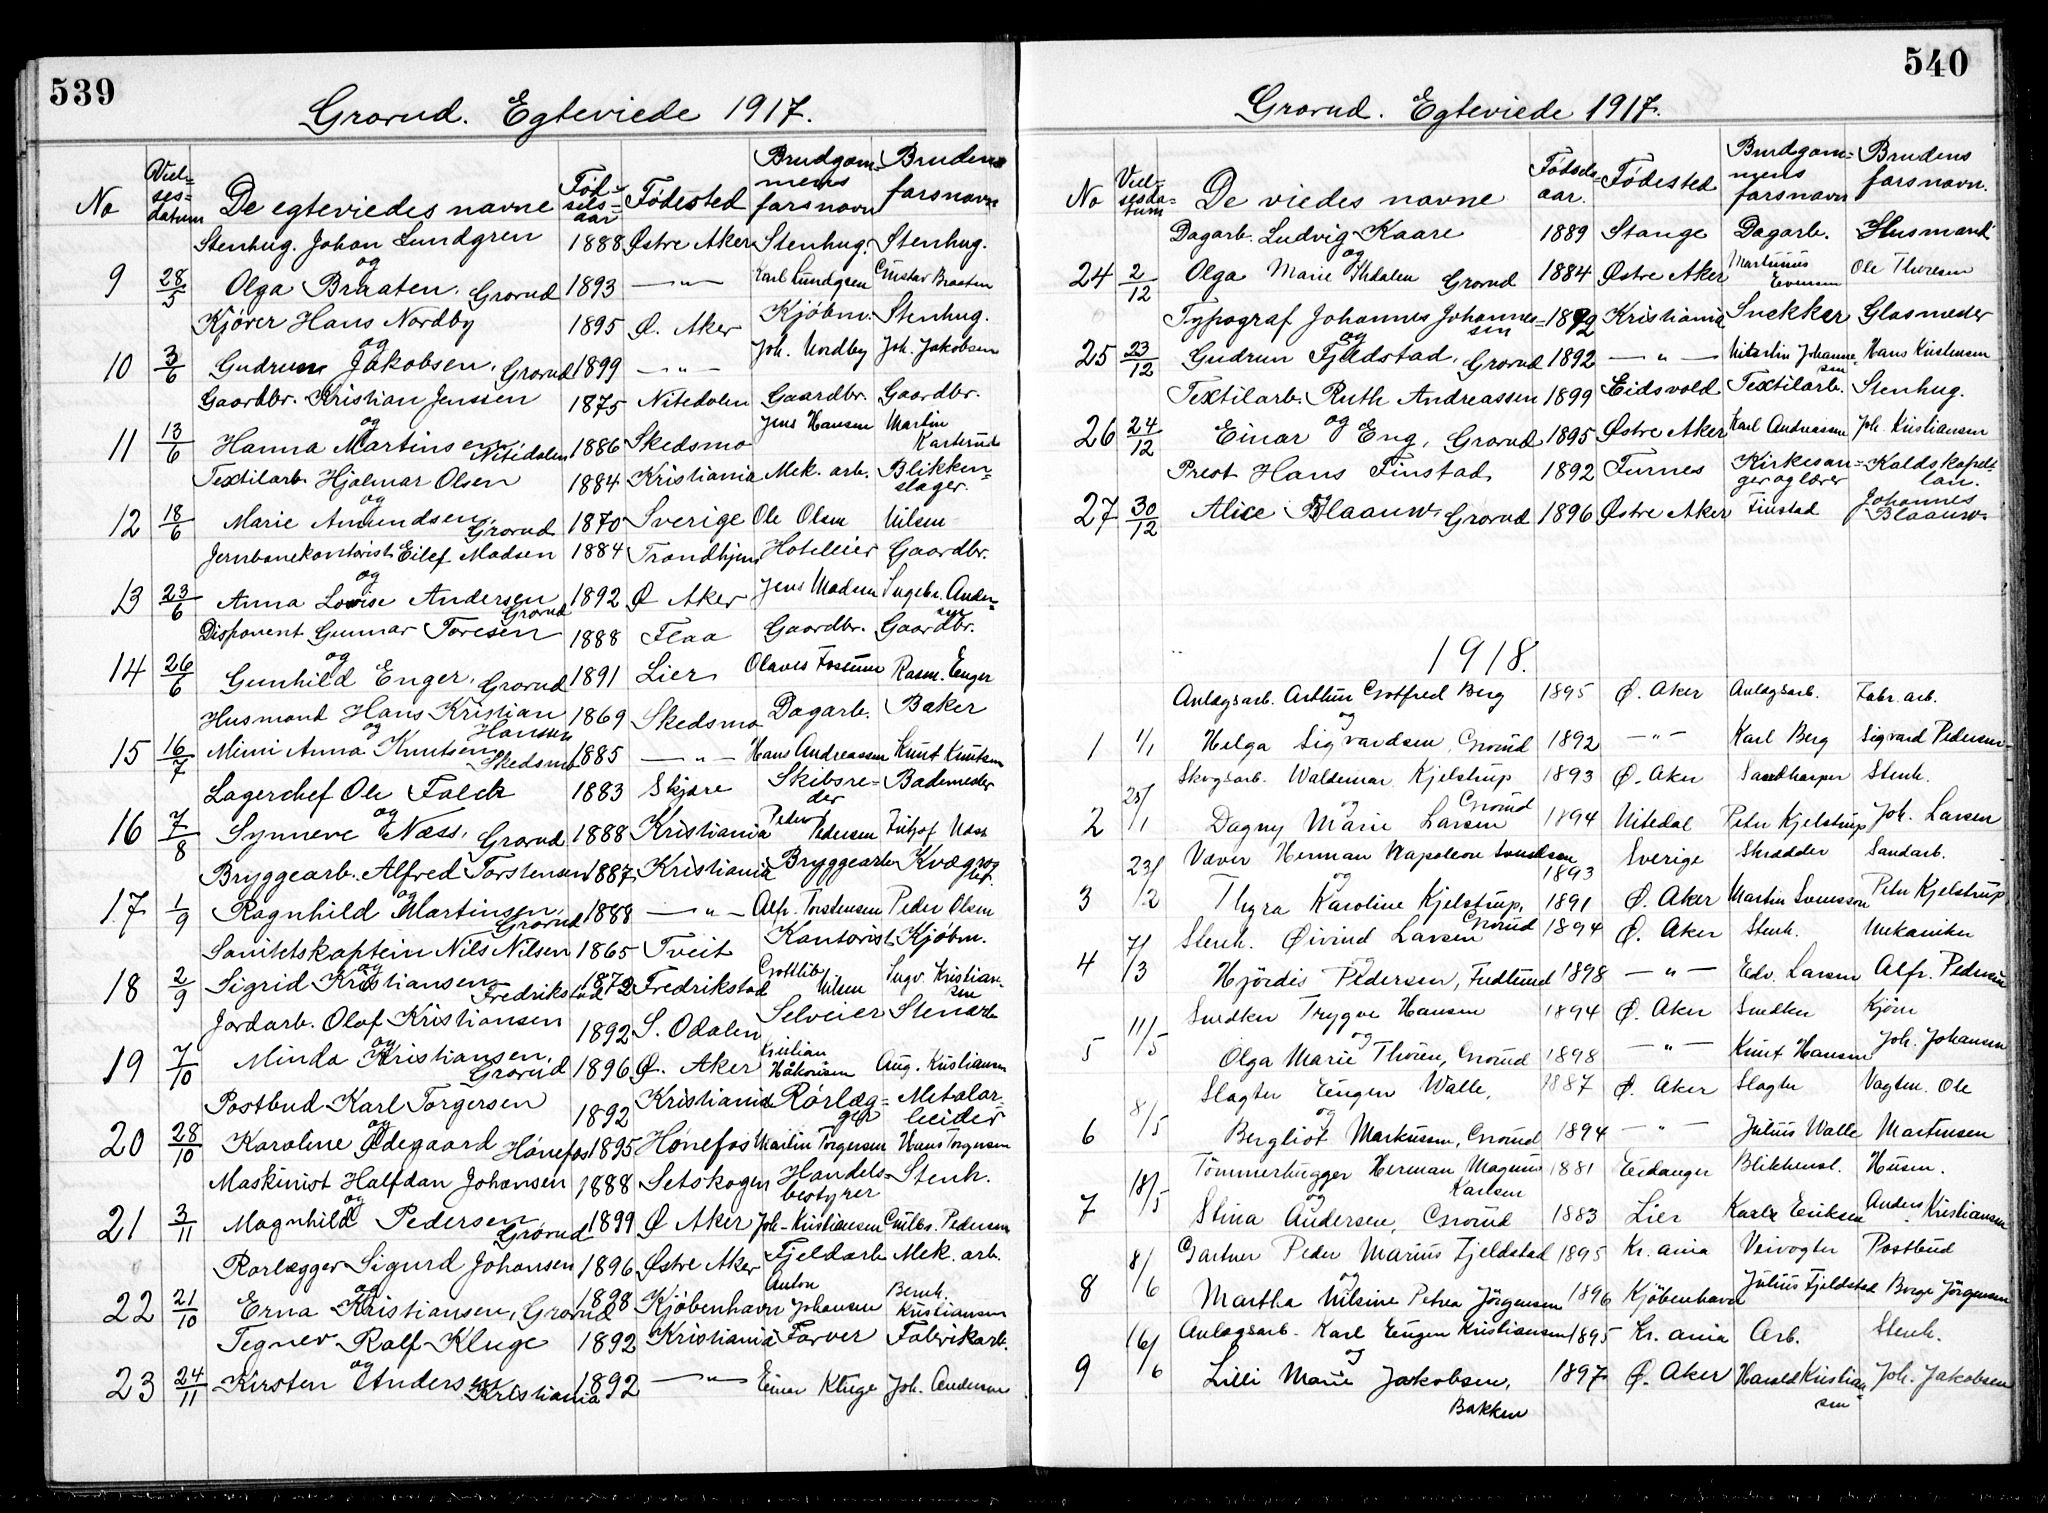 539
Grorud. Egteviede 1917.
No Viel=sesdatum De egteviedes navne Fød-sels-aar Fødested Brudgom=mens farsnavn Brudens farsnavn
Stenhug. Johan Lundgren 1888 Østre Aker Stenhug. Stenhug.
og
9 28/5 Olga Braaten. Grorud 1893 —"— Karl Lundgren Gustav Braaten
Kjører Hans Nordby 1895 Ø. Aker Kjøbm. Stenhug.
og
10 3/6 Gudrun Jakobsen. Grorud 1899 —"— Joh. Nordby Joh. Jakobsen
Gaardbr. Kristian Jenssen 1875 Nitedalen Gaardbr. Gaardbr.
og
11 13/6 Hanna Martinsen, Nitedalen 1886 Skedsmo Jens Hansen Martin Karlsrud
Textilarb. Hjalmar Olsen 1884 Kristiania Mek. arb. Blikken=slager.
og
12 18/6 Marie Amundsen, Grorud 1870 Sverige Ole Olsen Nilsen
Jernbanekontorist Eilef Madsen 1884 Trondhjem Hoteleier Gaardbr.
og
13 23/6 Anna Lovise Andersen Grorud 1892 Ø Aker Jens Madsen Ingebr. Ander=sen
Disponent Gunnar Toresen 1888 Flaa Gaardbr. Gaardbr.
og
14 26/6 Gunhild Enger, Grorud 1891 Lier Olaves Fossum Rasm. Enger
Husmand Hans Kristian Hanssen 1869 Skedsmo Dagarb. Baker
og
15 16/7 Mimi Anna Knutsen, Skedsmo 1885 —"— Hans Andreassen Knut Knutsen
Lagerchef Ole Falck 1883 Skjøre Skibsre=der Bademester
og
16 7/8 Synneve Næss, Grorud 1888 Kristiania Peder Pedersen Fritjof Næss
Bryggearb. Alfred Torstensen 1887 Kristiania Bryggearb.
og
17 1/9 Ragnhild Martinsen, Grorud 1888 —"— Alf. Torstensen Peder Olsen
Sanitetskaptein Nils Nilsen 1865 Tveit Kontorist Kjøbm.
og
18 2/9 Sigrid Kristiansen, Fredrikstad 1872 Fredrikstad Gottlib Nilsen Ingv. Kristian=sen
Jordarb. Olaf Kristiansen 1892 S. Odalen Selveier Stenarb
og
19 7/10 Minda Kristiansen, Grorud 1896 Ø. Aker Kristian Håkonsen Aug. Kristiansen
Postbud Karl Torgersen 1892 Kristiania Rørlæg=ger Metalar-beider
og
20 28/10 Karoline Ødegaard Hønefos 1895 Hønefos Martin Torgersen Hans Torgersen
Maskinist Halfdan Johansen 1888 Setskogen Handels=bestyrer Stenh.
og
21 3/11 Magnhild Pedersen Grorud 1899 Ø Aker Joh. Kristiansen Gulbr. Pedersen
Rørlægger Sigurd Johansen 1896 Østre Aker Fjeldarb. Mek. arb.
og
22 21/10 Erna Kristiansen, Grorud 1898 Kjøbenhavn Anton Johansen Bernh. Kristiansen
Tegner Ralf Kluge 1892 Kristiania Farver Fabrikarb.
og
23 24/11 Kirsten Andersen Kristiania 1892 —"— Einar Kluge Joh. Andersen
540
Grorud. Egteviede 1917.
No Viel-sesda=tum De viedes navne Fødsels-aar. Fødested Brudgom=mens farsnavn Brudens farsnavn.
Dagarb. Ludvig Kaare 1889 Stange Dagarb. Husmand
og
24 2/12 Olga Marie Thdalen Grorud 1884 Østre Aker Martinius Evensen Ole Thoresen
Typograf Johannes Johannes=sen 1892 Kristiania Snekker Glasmester
og
25 23/12 Gudrun Fjeldstad, Grorud 1892 —"— Martin Johanne=sen Hans Kristensen
Textilarb. Ruth Andreassen 1899 Eidsvold Textilarb. Stenhug.
og
26 24/12 Einar Eng, Grorud 1895 Østre Aker Karl Andreassen Joh. Kristiansen
Prest Hans Finstad, 1892 Furnes Kirkesan=ger og lærer Kaldskapel-lan.
27 30/12 Alice Blaauw, Grorud 1896 Østre Aker Finstad Johannes Blaauw
1918.
Anlægsarb. Arthur Gotfred Berg 1895 Ø. Aker Anlægsarb. Fabr. arb.
og
1 1/1 Helga Sigvardsen, Grorud 1892 —"— Karl Berg Sigvard Pedersen
Skogsarb. Waldemar Kjelstrup 1893 Ø. Aker Sandharper Stenh.
og
2 25/1 Dagny Marie Larsen Grorud 1894 Nitedal Peter Kjelstrup Joh. Larsen
Væver Herman Napoleon Svendsen 1893 Sverige Skrædder Sandarb.
og
3 23/2 Thyra Karoline Kjelstrup, Grorud 1891 Ø. Aker Martin Svensson Peter Kjelstrup
Stenh. Øivind Larsen 1894 Ø. Aker Stenh. Mekaniker
og
4 7/3 Hjördis Pedersen, Fredlund 1898 —"— Edv. Larsen Alfr. Pedersen
Snedker Trygve Hansen 1894 Ø. Aker Snedker Kjörer
og
5 11/5 Olga Marie Thoren, Grorud 1898 —"— Knut Hansen Joh. Johansen
Slagter Eugen Walle, 1887 Ø. Aker Slagter Vagtm. Ole
og
6 8/5 Bergliot Markussen, Grorud 1894 —"— Julius Walle Martinsen
Tömmerhugger Herman Magnus Karlsen 1881 Eidanger Blikkensl. Husm.
og
7 18/5 Stina Andersen, Grorud 1883 Lier Karl Eriksen Anders Kristiansen
Gartner Peder Marius Fjeldstad 1895 Kr. ania Veivogter Postbud
og
8 8/6 Martha Nilsine Petrea Jörgensen 1896 Kjöbenhavn Julius Fjeldstad Borge Jörgensen
Anlægsarb. Karl Eugen Kristiansen 1895 Kr. ania Arb. Stenh.
og
9 16/6 Lilli Marie Jakobsen, Bakken 1897 Ø. Aker Harald Kristian=sen Joh. Jakobsen